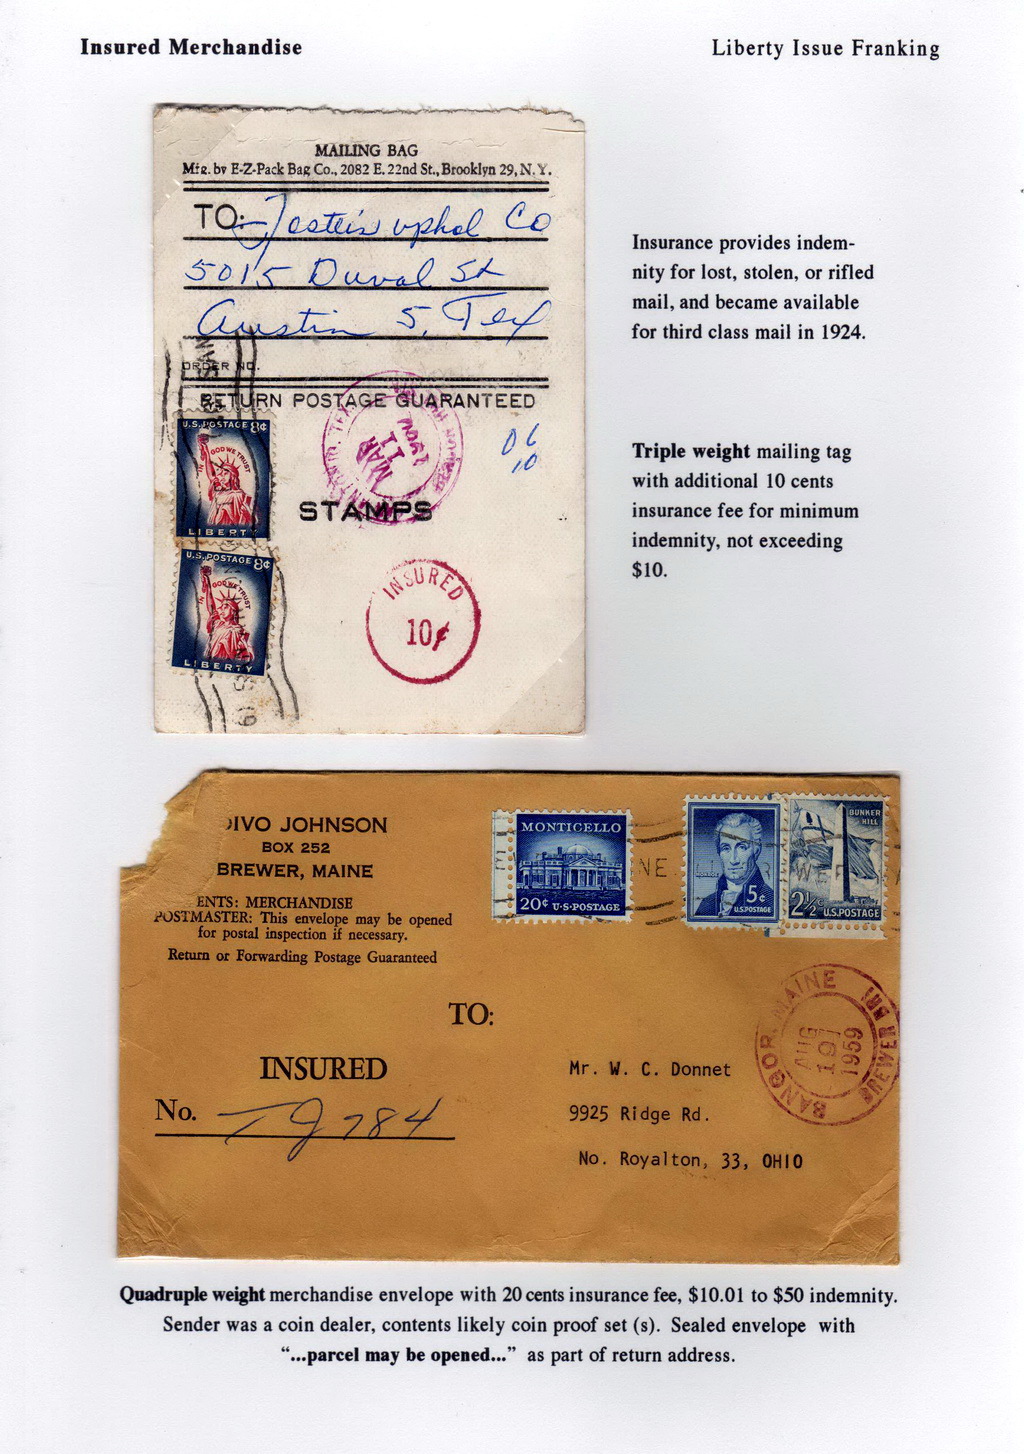 Insured Merchandise
Liberty Issue Franking
MAILING BAG
Mfg. by E-Z-Pack Bag Co., 2082 E. 22nd St., Brooklyn 29, N. Y.
TO: uphol Co
5015 Duval St
Austin 5, Tex
ORDER NO.
RETURN POSTAGE GUARANTEED
Insurance provides indem-
nity for lost, stolen, or rifled
mail, and became available
for third class mail in 1924.
U.S. POSTAGE 8¢
IN GOD WE TRUST
LIBERTY
U.S. POSTAGE 8¢
IN GOD WE TRUST
LIBERTY
MAR
11
10
STAMPS
INSURED
10¢
Triple weight mailing tag
with additional 10 cents
insurance fee for minimum
indemnity, not exceeding
$10.
IVO JOHNSON
BOX 252
BREWER, MAINE
ENTS: MERCHANDISE
POSTMASTER: This envelope may be opened
for postal inspection if necessary.
Return or Forwarding Postage Guaranteed
MONTICELLO
20¢ U·S·POSTAGE
MONROE
5¢
U.S. POSTAGE
BUNKER
HILL
2½¢ U.S. POSTAGE
BANGOR, MAINE
AUG
19
1959
BREWER BR.
TO:
INSURED
No. 784
Mr. W. C. Donnet
9925 Ridge Rd.
No. Royalton, 33, OHIO
Quadruple weight merchandise envelope with 20 cents insurance fee, $10.01 to $50 indemnity.
Sender was a coin dealer, contents likely coin proof set (s). Sealed envelope with
“...parcel may be opened...” as part of return address.